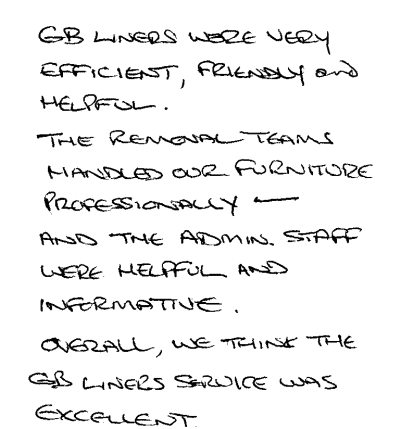 GB LINERS WERE VERY
EFFICIENT, FRIENDLY and
HELPFUL.
THE REMOVAL TEAMS
HANDLED OUR FURNITURE
PROFESSIONALLY —
AND THE ADMIN. STAFF
WERE HELPFUL AND
INFORMATIVE.
OVERALL, WE THINK THE
GB LINERS SERVICE WAS
EXCELLENT